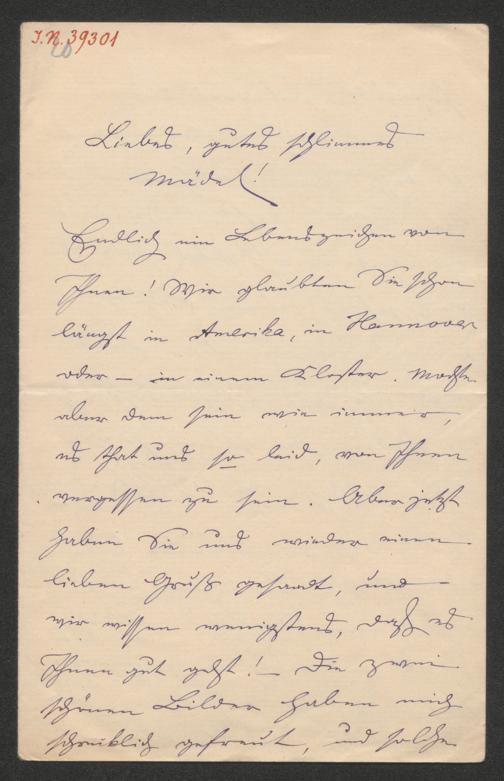 J.N. 39301
20
Liebes, gutes schlimmes
Mädel!
Endlich ein Lebenszeichen von
Ihnen! Wir glaubten Sie schon
längst in Amerika, in Hannover
oder – in einem Kloster. Mochte
aber dem sein wie immer,
es that uns so leid, von Ihnen
vergessen zu sein. Aber jetzt
haben Sie uns wieder einen
lieben Gruß gesandt, und
wir wissen wenigstens, daß es
Ihnen gut geht! – Die zwei
schönen Bilder haben mich
schrecklich gefreut, und solche